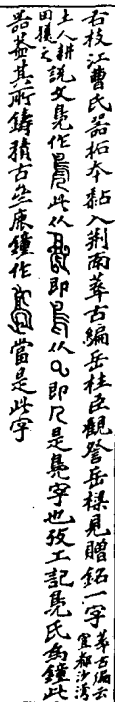 右枝江曹氏器拓本黏入荆南萃古編岳桂臣觀詧岳樑見贈銘一字萃古編云宜都沙灣
土人耕田獲之說文鳧作此从即从几是鳧字也攷工記鳧氏為鐘此
器葢其所鑄積古𠫵鐘作當是此字